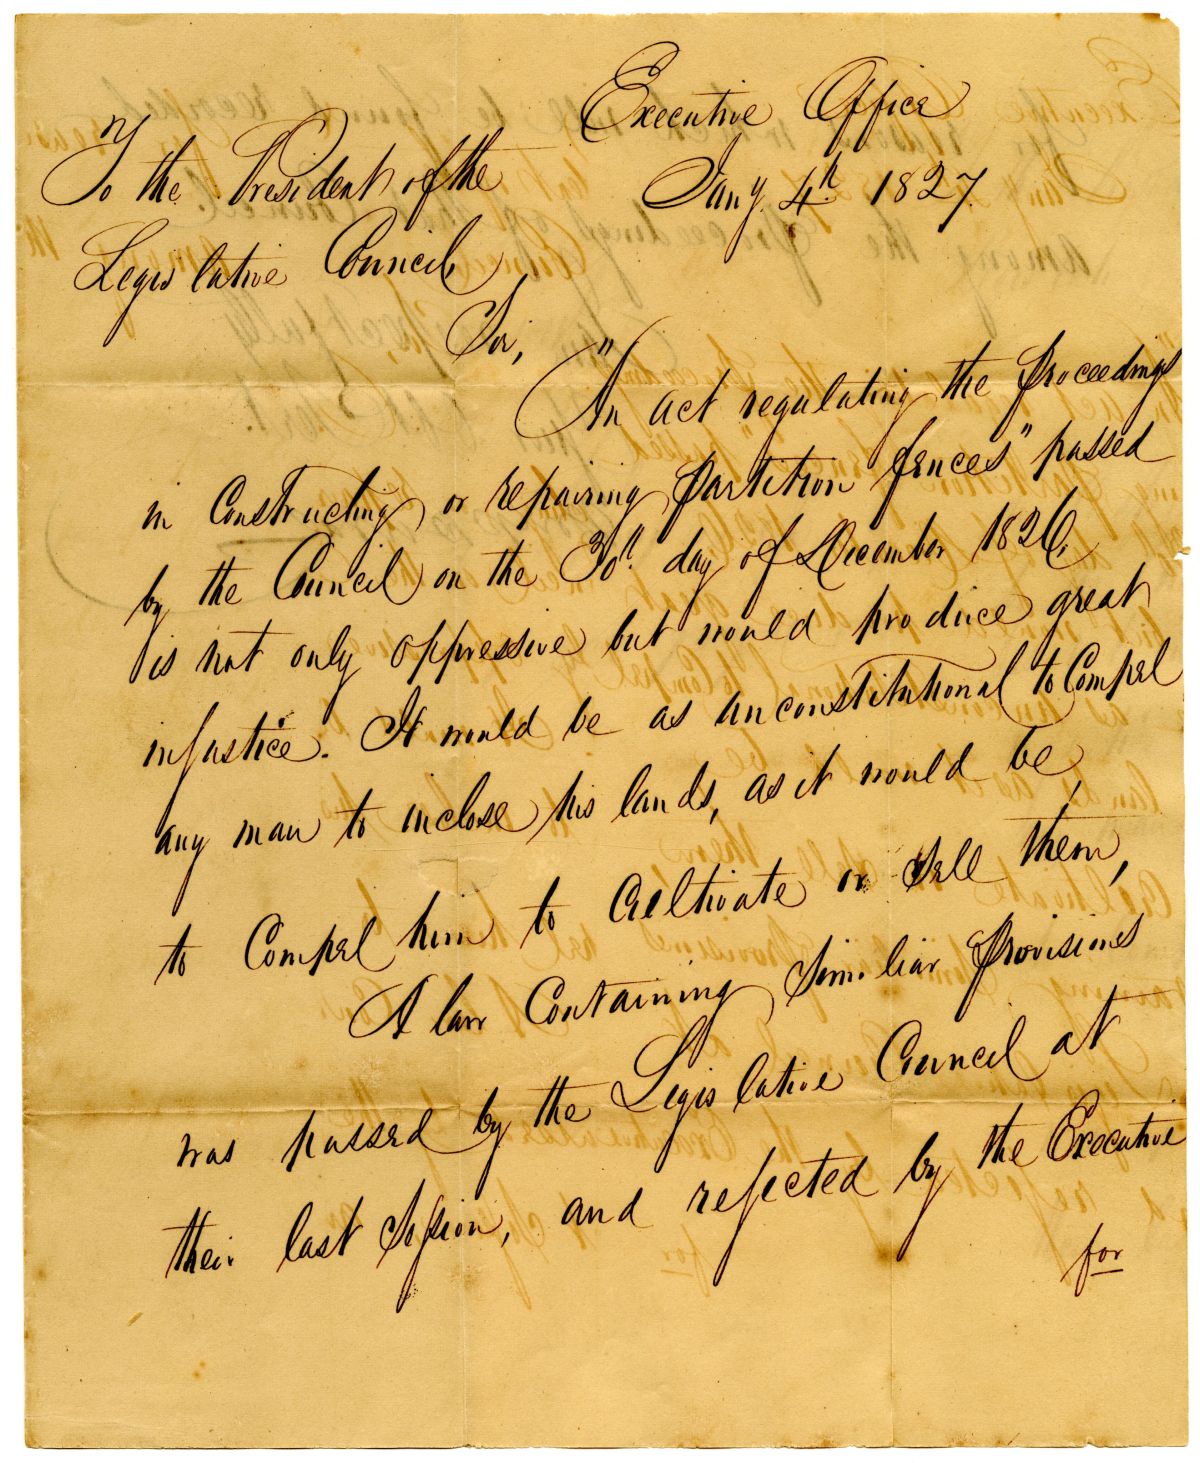 Executive Office
Jany. 4th 1827.
To the President of the
Legislative Council,
Sir,
"An act regulating the proceedings
in Constructing or repairing partition fences" passed
by the Council on the 30th. day of December 1826,
is not only oppressive but would produce great
injustice. It would be as unconstitutional to Compel
any man to inclose his lands, as it would be,
to Compel him to Cultivate or sell them,
A law Containing similiar provisions
was passed by the Legislative Council at
their last session, and rejected by the Executive
for